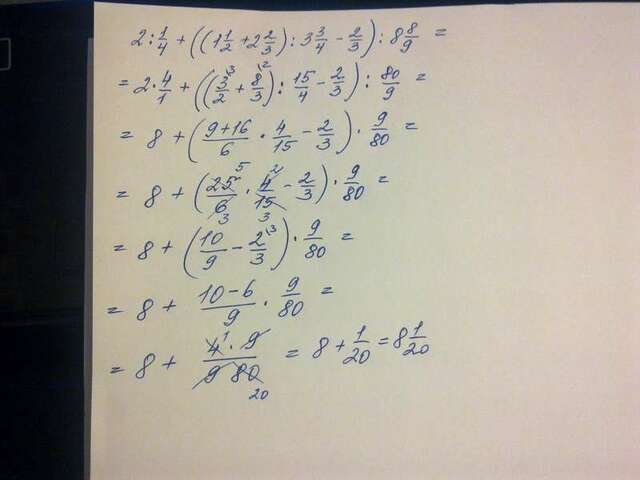 2 : 1/4 + ((1 1/2 + 2 2/3) : 3 3/4 - 2/3) : 8 8/9 =
= 2 · 4/1 + ((3/2 ^3 + 8/3 ^2) : 15/4 - 2/3) : 80/9 =
= 8 + (9+16/6 · 4/15 - 2/3) · 9/80 =
= 8 + (25/6 · 4/15 - 2/3) · 9/80 = 5 2 3 3
= 8 + (10/9 - 2/3 ^3) · 9/80 =
= 8 + 10-6/9 · 9/80 =
= 8 + 4 ^1 · 9/9 80 = 8 + 1/20 = 8 1/20
20